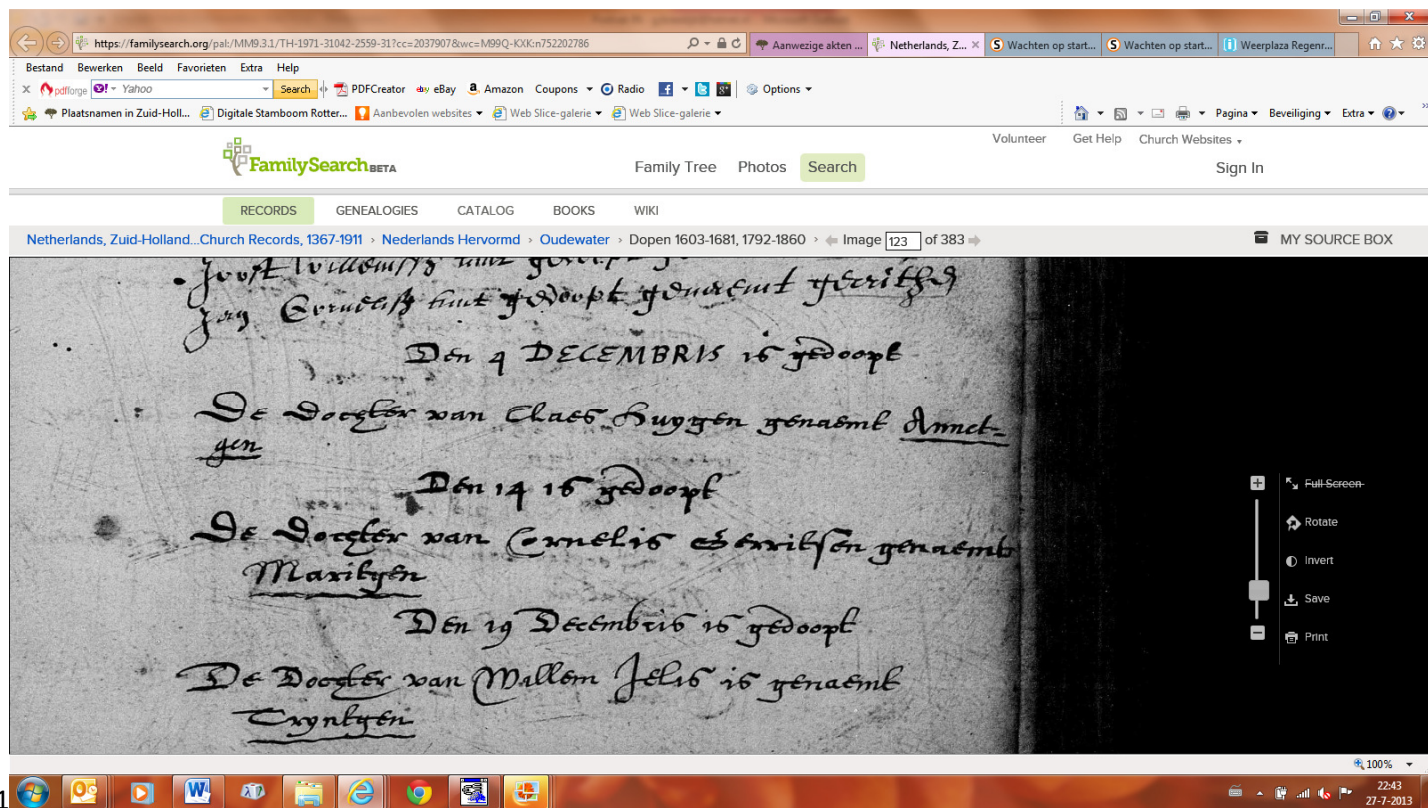 https://familysearch.org/pal:/MM9.3.1/TH-1971-31042-2559-31?cc=2037907&wc=M99Q-KXK:n752202786
Aanwezige akten ...
Netherlands, Z...
Wachten op start...
Wachten op start...
Weerplaza Regenr...
Bestand Bewerken Beeld Favorieten Extra Help
pdfforge Yahoo Search PDFCreator eBay Amazon Coupons Radio Options
Plaatsnamen in Zuid-Holl... Digitale Stamboom Rotter... Aanbevolen websites Web Slice-galerie Web Slice-galerie
Pagina Beveiliging Extra
Volunteer Get Help Church Websites
FamilySearch BETA
Family Tree Photos Search Sign In
RECORDS GENEALOGIES CATALOG BOOKS WIKI
Netherlands, Zuid-Holland...Church Records, 1367-1911 › Nederlands Hervormd › Oudewater › Dopen 1603-1681, 1792-1860 › Image 123 of 383
MY SOURCE BOX
Joost Willemss
Jan Corneliss gedoopt genaemt
Den 4 DECEMBRIS is gedoopt
De Dochter van Claes Huygen genaemt Annet-
gen
Den 14 is gedoopt
De Dochter van Cornelis Gerritsen genaemt
Maritgen
Den 19 Decembris is gedoopt
De Dochter van Willem Jelis is genaemt
Tryntgen
Full Screen
Rotate
Invert
Save
Print
100%
1
22:43
27-7-2013